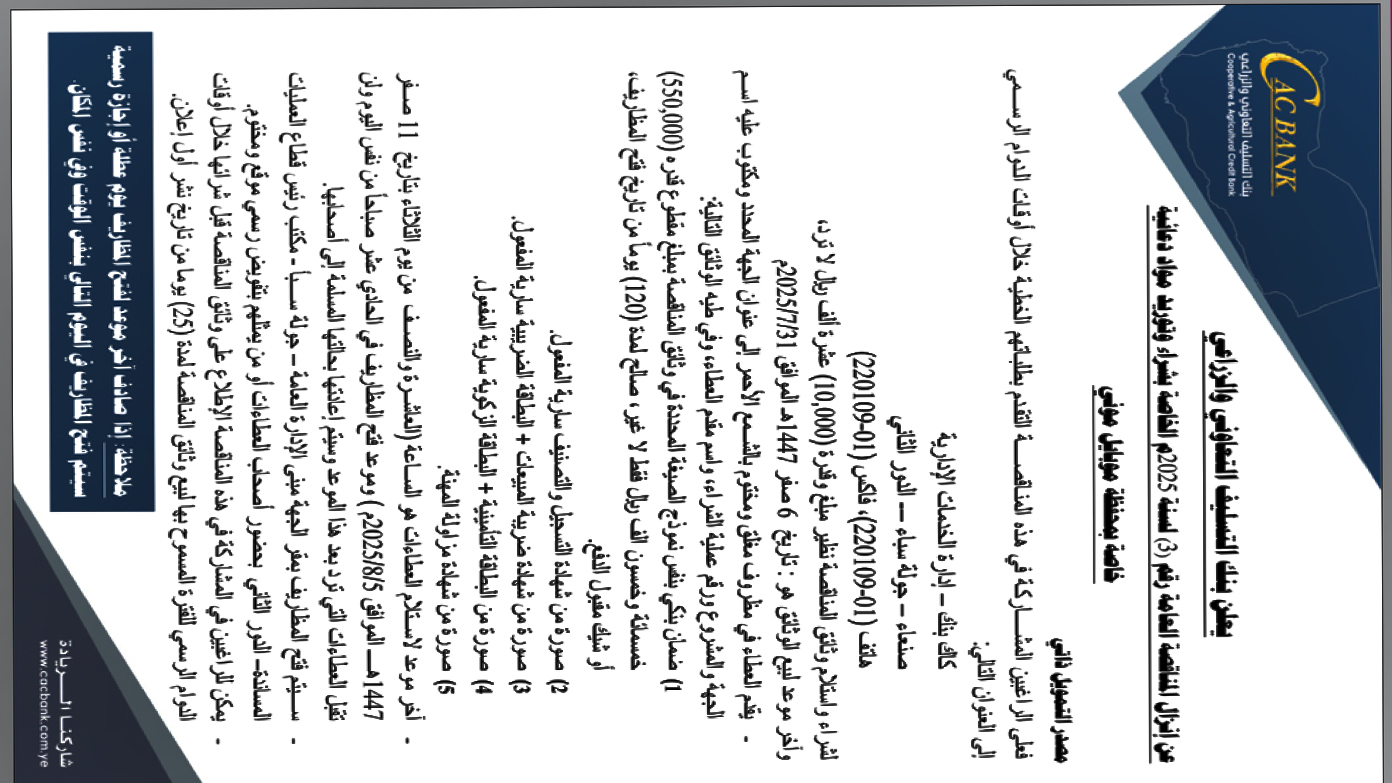 CAC BANK
بنك التسليف التعاوني والزراعي
Cooperative & Agricultural Credit Bank
يعلن بنك التسليف التعاوني والزراعي
عن إنزال المناقصة العامة رقم (3) لسنة 2025م الخاصة بشراء وتوريد مواد دعائية
خاصة بمحفظة موبايل موني
مصدر التمويل ذاتي
فعلى الراغبين المشاركة في هذه المناقصة التقدم بطلباتهم الخطية خلال أوقات الدوام الرسمي
إلى العنوان التالي:
كاك بنك – إدارة الخدمات الإدارية
صنعاء – جولة سباء – الدور الثاني
هاتف (01-220109)، فاكس (01-220109)
لشراء واستلام وثائق المناقصة نظير مبلغ وقدرة (10,000) عشرة ألف ريال لا ترد،
وأخر موعد لبيع الوثائق هو : تاريخ 6 صفر 1447هـ الموافق 2025/7/31م
- يقدم العطاء في مظروف مغلق ومختوم بالشمع الأحمر إلى عنوان الجهة المحدد ومكتوب عليه اسم
الجهة والمشروع ورقم عملية الشراء، واسم مقدم العطاء، وفي طيه الوثائق التالية:
1) ضمان بنكي بنفس نموذج الصيغة المحددة في وثائق المناقصة بمبلغ مقطوع قدره (550,000)
خمسمائة وخمسون الف ريال فقط لا غير ، صالح لمدة (120) يوماً من تاريخ فتح المظاريف،
أو شيك مقبول الدفع.
2) صورة من شهادة التسجيل والتصنيف سارية المفعول.
3) صورة من شهادة ضريبة المبيعات + البطاقة الضريبية سارية المفعول.
4) صورة من البطاقة التأمينية + البطاقة الزكوية سارية المفعول.
5) صورة من شهادة مزاولة المهنة.
- آخر موعد لاستلام العطاءات هو الساعة (العاشرة والنصف من يوم الثلاثاء بتاريخ 11 صفر
1447هـ الموافق 2025/8/5م ) وموعد فتح المظاريف في الحادي عشر صباحاً من نفس اليوم ولن
تقبل العطاءات التي ترد بعد هذا الموعد وسيتم إعادتها بحالتها المسلمة إلى أصحابها.
- سيتم فتح المظاريف بمقر الجهة مبنى الإدارة العامة – جولة سبأ - مكتب رئيس قطاع العمليات
المساندة– الدور الثاني بحضور أصحاب العطاءات أو من يمثلهم بتفويض رسمي موقع ومختوم.
- يمكن للراغبين في المشاركة في هذه المناقصة الإطلاع على وثائق المناقصة قبل شرائها خلال أوقات
الدوام الرسمي للفترة المسموح بها لبيع وثائق المناقصة لمدة (25) يوما من تاريخ نشر أول إعلان.
ملاحظة إذا صادف أخر موعد لفتح المظاريف يوم عطلة أو إجازة رسمية
سيتم فتح المظاريف في اليوم التالي بنفس الوقت وفي نفس المكان.
شاركنا الريادة
www.cacbank.com.ye